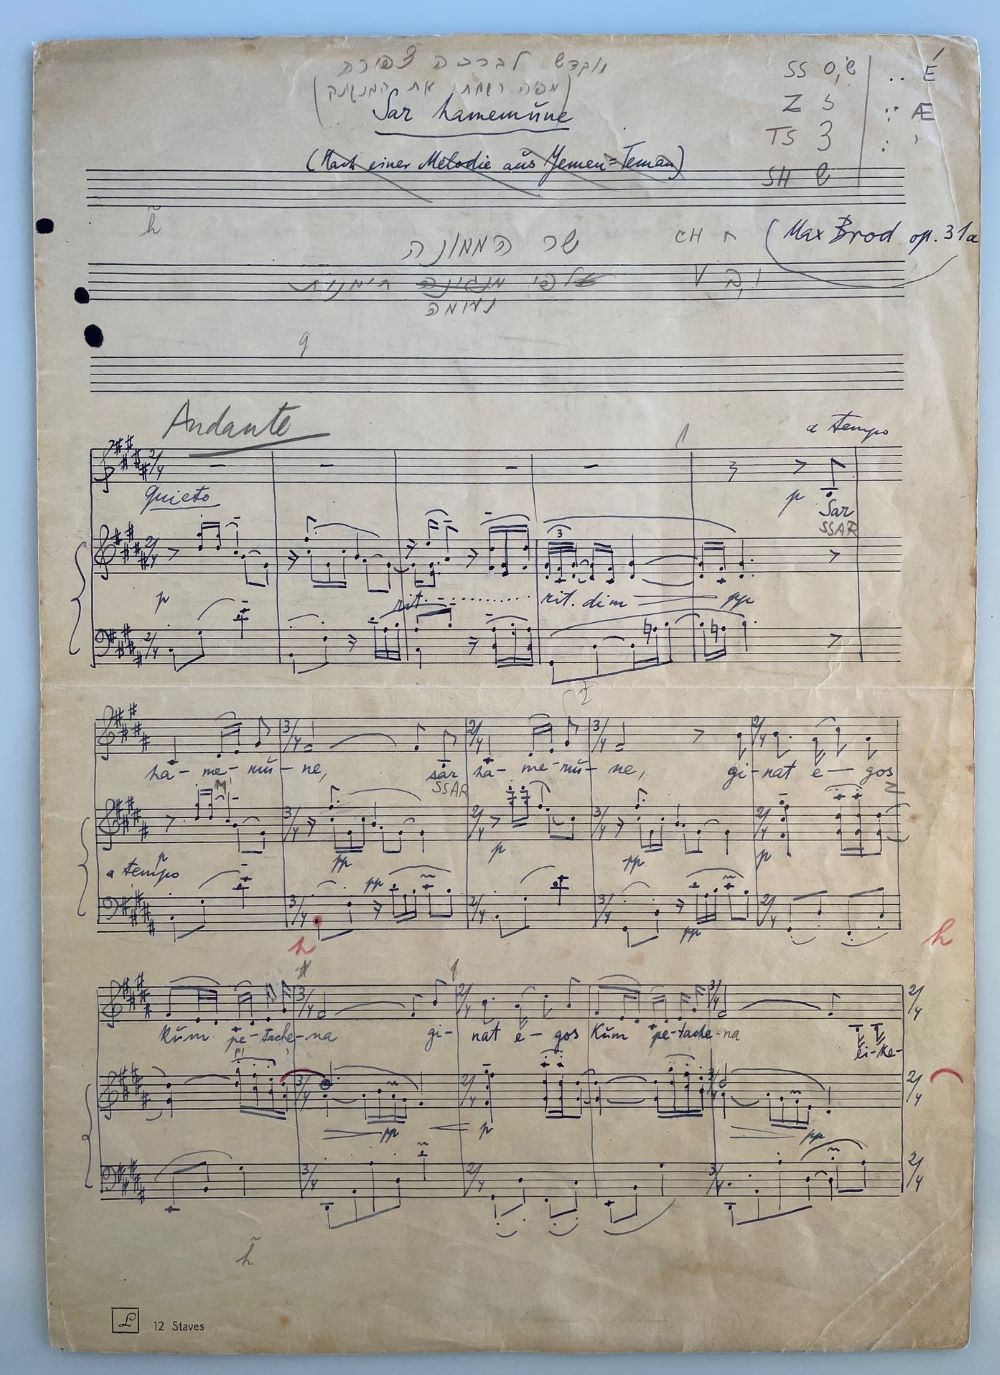 מוקדש לברכה צפירה
(ממנה רשמתי את המנגינה)
Sar hamemūne
(Nach einer Melodie aus Yemen=Teman)
SS שׂ,ס
Z ז
TS צ
SH שׁ
.. É
Æ
h̃
שר הממונה
CH ח
(Max Brod op. 31a
לפי מנגינה תימנית
נעימה
V ו,ב
9
Andante
a tempo
quieto
p
Sar
SSAR
3
p
rit.
rit. dim
pp
ha-me-nū-ne,
sar
SSAR
ha-me-nū-ne,
gi-nat e-gos
M
p
a tempo
pp
pp
p
pp
pp
p
h
h
Kūm pe-tache-na
gi-nat e-gos Kūm pe-tache-na
ei-ke-
pp
p
pp
h̃
L 12 Staves